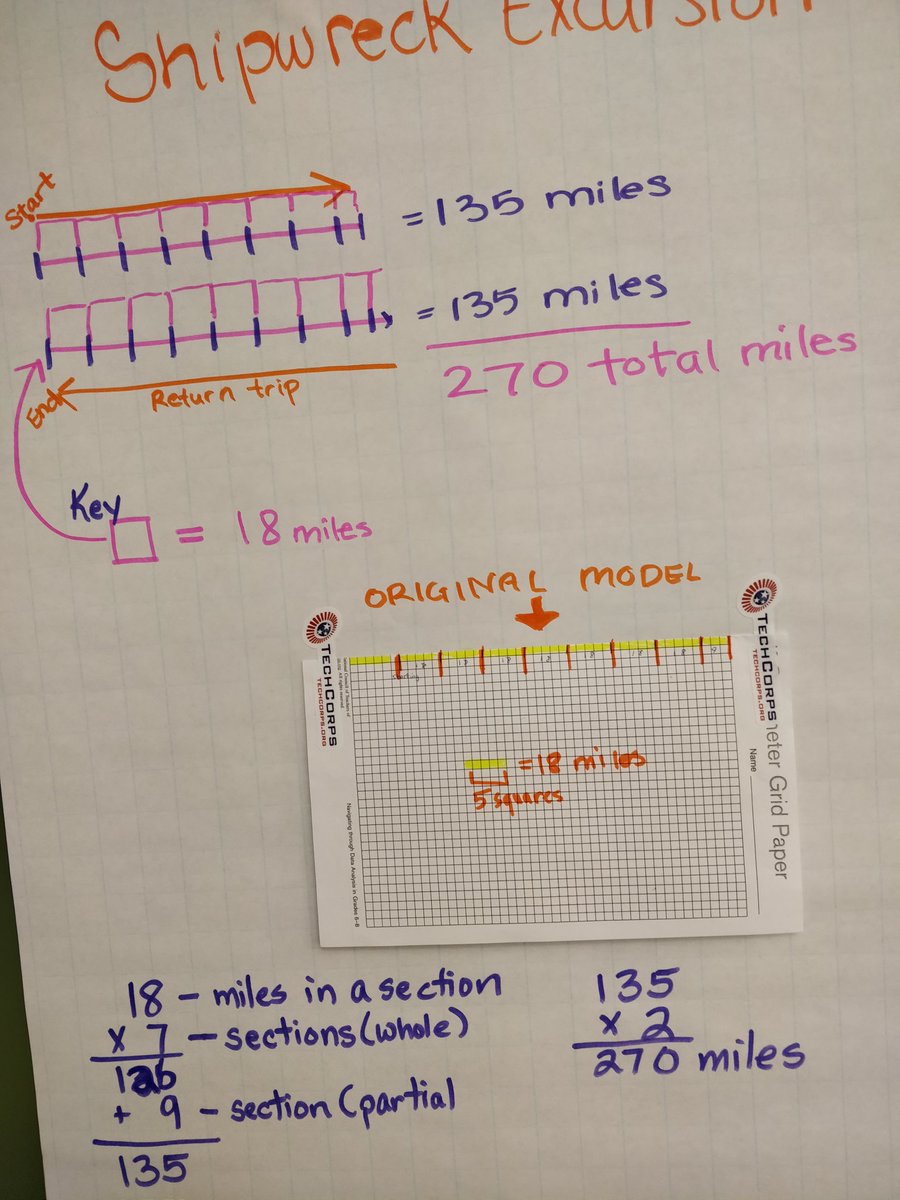 Shipwreck Excursion
Start
= 135 miles
= 135 miles
270 total miles
End
Return trip
Key
= 18 miles
ORIGINAL MODEL
TECHCORPS
TECHCORPS.ORG
TECHCORPS
TECHCORPS.ORG
meter Grid Paper
Name
= 18 miles
5 squares
Navigating through Data Analysis in Grades 6–8
18 – miles in a section
x 7 – sections (whole)
126
+ 9 – section (partial
135
135
x 2
270 miles